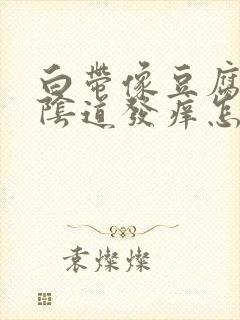 白帶像豆腐
陰道發癢怎
袁燦燦